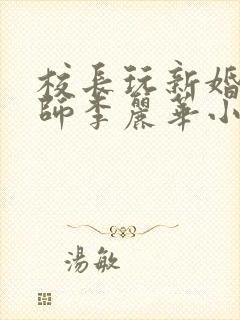 校長玩新婚
師李麗華小
湯敏